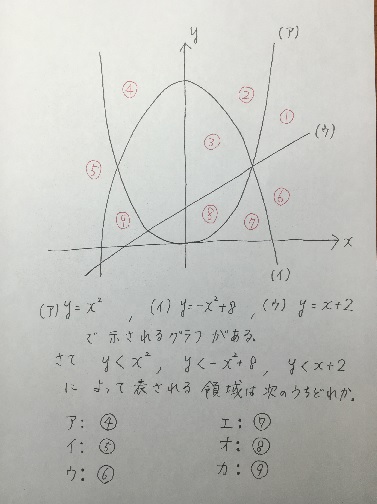 y
(ア)
④
②
①
(ウ)
③
⑤
⑥
⑨
⑧
⑦
x
(イ)
(ア) y=x² , (イ) y=-x²+8 , (ウ) y=x+2
で示されるグラフがある。
さて y<x², y<-x²+8, y<x+2
によって表される領域は次のうちどれか。
ア: ④ エ: ⑦
イ: ⑤ オ: ⑧
ウ: ⑥ カ: ⑨